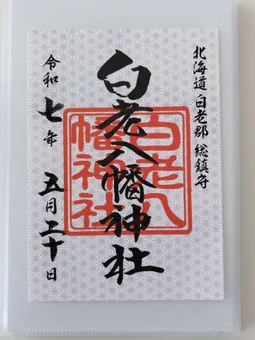 北海道 白老郡 総鎮守
白老八幡神社
白老八幡神社
令和七年 五月二十日